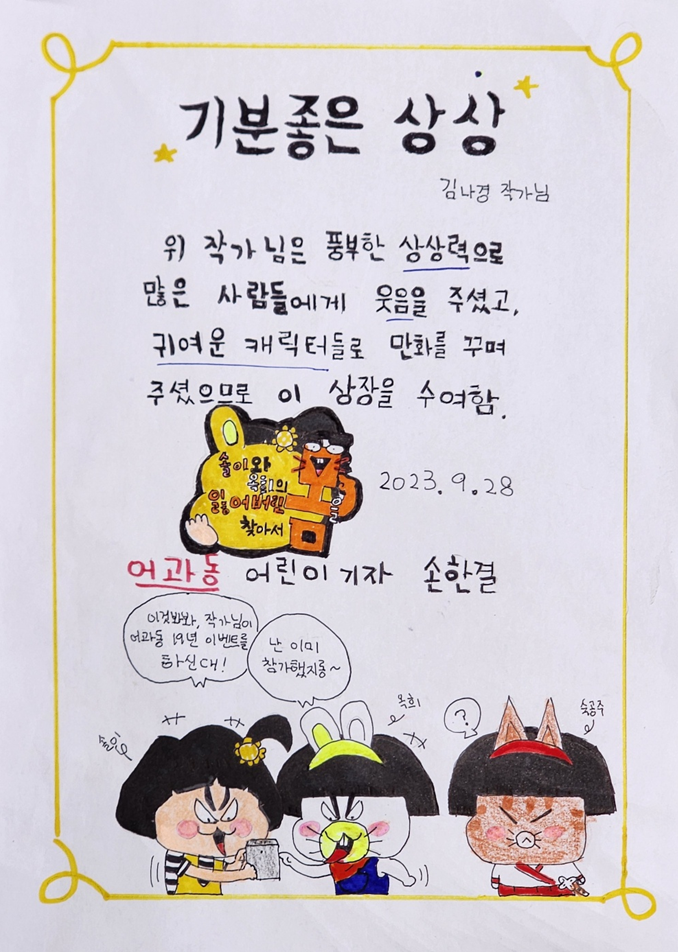 기분좋은 상상
김나경 작가님
위 작가님은 풍부한 상상력으로
많은 사람들에게 웃음을 주셨고,
귀여운 캐릭터들로 만화를 꾸며
주셨으므로 이 상장을 수여함.
솔이와
옥희의
잃어버린
찾아서
2023.9.28
어과동 어린이 기자 손한결
이것봐봐, 작가님이
어과동 19년 이벤트를
하신대!
난 이미
참가했지롱~
옥희
?
숙공주